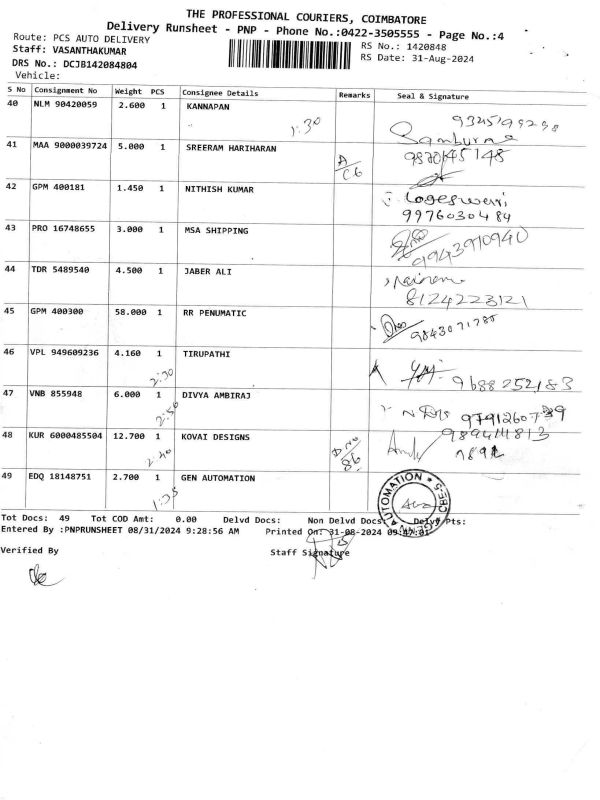 THE PROFESSIONAL COURIERS, COIMBATORE
Delivery Runsheet - PNP - Phone No.:0422-3505555 - Page No.:4
Route: PCS AUTO DELIVERY
RS No.: 1420848
Staff: VASANTHAKUMAR
RS Date: 31-Aug-2024
DRS No.: DCJB142084804
Vehicle:
S No Consignment No Weight PCS Consignee Details Remarks Seal & Signature
40 NLM 90420059 2.600 1 KANNAPAN
1:30
41 MAA 9000039724 5.000 1 SREERAM HARIHARAN 9870145148
42 GPM 400181 1.450 1 NITHISH KUMAR Logeswari
9976030484
43 PRO 16748655 3.000 1 MSA SHIPPING
9943910940
44 TDR 5489540 4.500 1 JABER ALI
8124223121
45 GPM 400300 58.000 1 RR PENUMATIC
46 VPL 949609236 4.160 1 TIRUPATHI
2:30 9688252183
47 VNB 855948 6.000 1 DIVYA AMBIRAJ
2:50
48 KUR 6000485504 12.700 1 KOVAI DESIGNS
2:40
49 EDQ 18148751 2.700 1 GEN AUTOMATION
1:35
GEN AUTOMATION * CBE-5 *
Tot Docs: 49 Tot COD Amt: 0.00 Delvd Docs: Non Delvd Docs: Delvy Pts:
Entered By :PNPRUNSHEET 08/31/2024 9:28:56 AM Printed On: 31-08-2024 09:47:01
Verified By Staff Signature